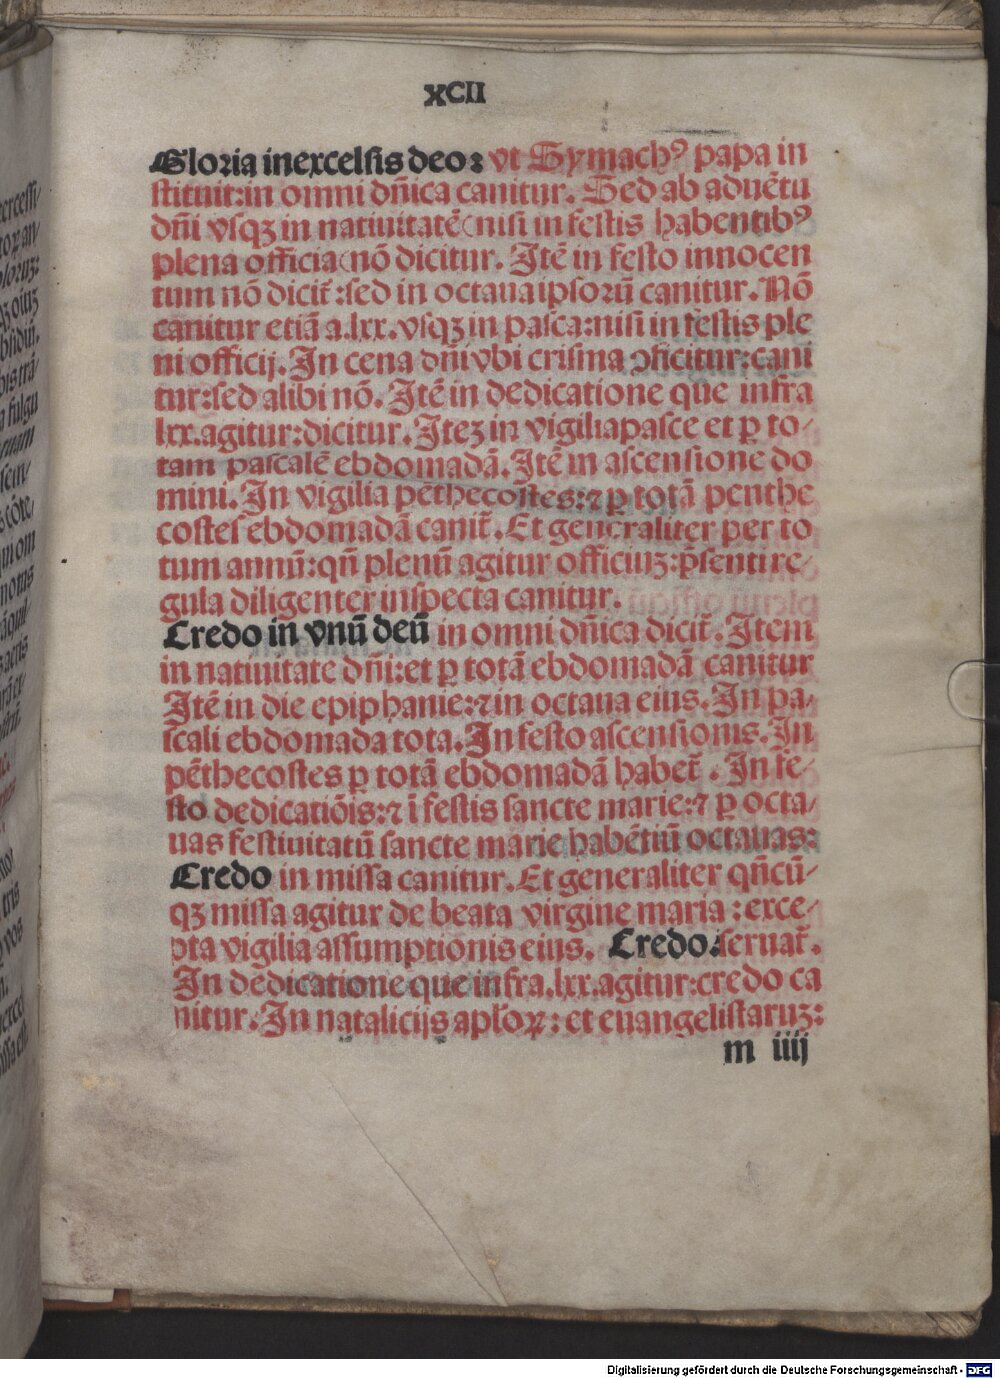 XCII
Gloria in excelsis deo: vt Symachꝰ papa in
stituit: in omni dñica canitur. Sed ab aduẽtu
dñi vsqꝫ in natiuitatẽ (nisi in festis habentibꝰ
plena officia( nõ dicitur. Itẽ in festo innocen
tum nõ dicit̃ : sed in octaua ipsorũ canitur. Nõ
canitur etiã a .lxx. vsqꝫ in pasca: nisi in festis ple
ni officij. In cena dñi vbi crisma ꝯficitur: cani
tur: sed alibi nõ. Itẽ in dedicatione que infra
lxx. agitur: dicitur. Iteꝫ in vigilia pasce et ꝑ to/
tam pascalẽ ebdomadã. Itẽ in ascensione do
mini. In vigilia pẽthecostes: ⁊ ꝑ totã penthe
costes ebdomadã canit̃. Et generaliter per to
tum annũ: qñ plenũ agitur officiuꝫ: p̃senti re
gula diligenter inspecta canitur.
Credo in vnũ deũ in omni dñica dicit̃. Item
in natiuitate dñi: et ꝑ totã ebdomadã canitur
Itẽ in die epiphanie: ⁊ in octaua eius. In pa/
scali ebdomada tota. In festo ascensionis. In
pẽthecostes ꝑ totã ebdomadã habet̃ . In fe/
sto dedicatiõis: ⁊ ĩ festis sancte marie: ⁊ ꝑ octa/
uas festiuitatũ sancte marie habẽtiũ octauas:
Credo in missa canitur. Et generaliter qñcũ/
qꝫ missa agitur de beata virgine maria : exce/
pta vigilia assumptionis eius. Credo: seruat̃.
In dedicatione que infra .lxx. agitur: credo ca
nitur. In natalicijs apl'oꝝ : et euangelistaruꝫ:
m iiij
Digitalisierung gefördert durch die Deutsche Forschungsgemeinschaft - DFG